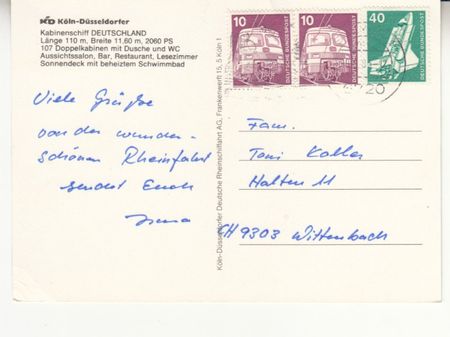 KD Köln-Düsseldorfer
Kabinenschiff DEUTSCHLAND
Länge 110 m, Breite 11,60 m, 2060 PS
107 Doppelkabinen mit Dusche und WC
Aussichtssalon, Bar, Restaurant, Lesezimmer
Sonnendeck mit beheiztem Schwimmbad
10
DEUTSCHE BUNDESPOST
10
DEUTSCHE BUNDESPOST
40
DEUTSCHE BUNDESPOST
Viele Grüße
von der wunder-
schönen Rheinfahrt
sendet Euch
Irma
Köln-Düsseldorfer Deutsche Rheinschiffahrt AG, Frankenwerft 15, 5 Köln 1
Fam.
Toni Koller
Halten 11
CH 9303 Wittenbach